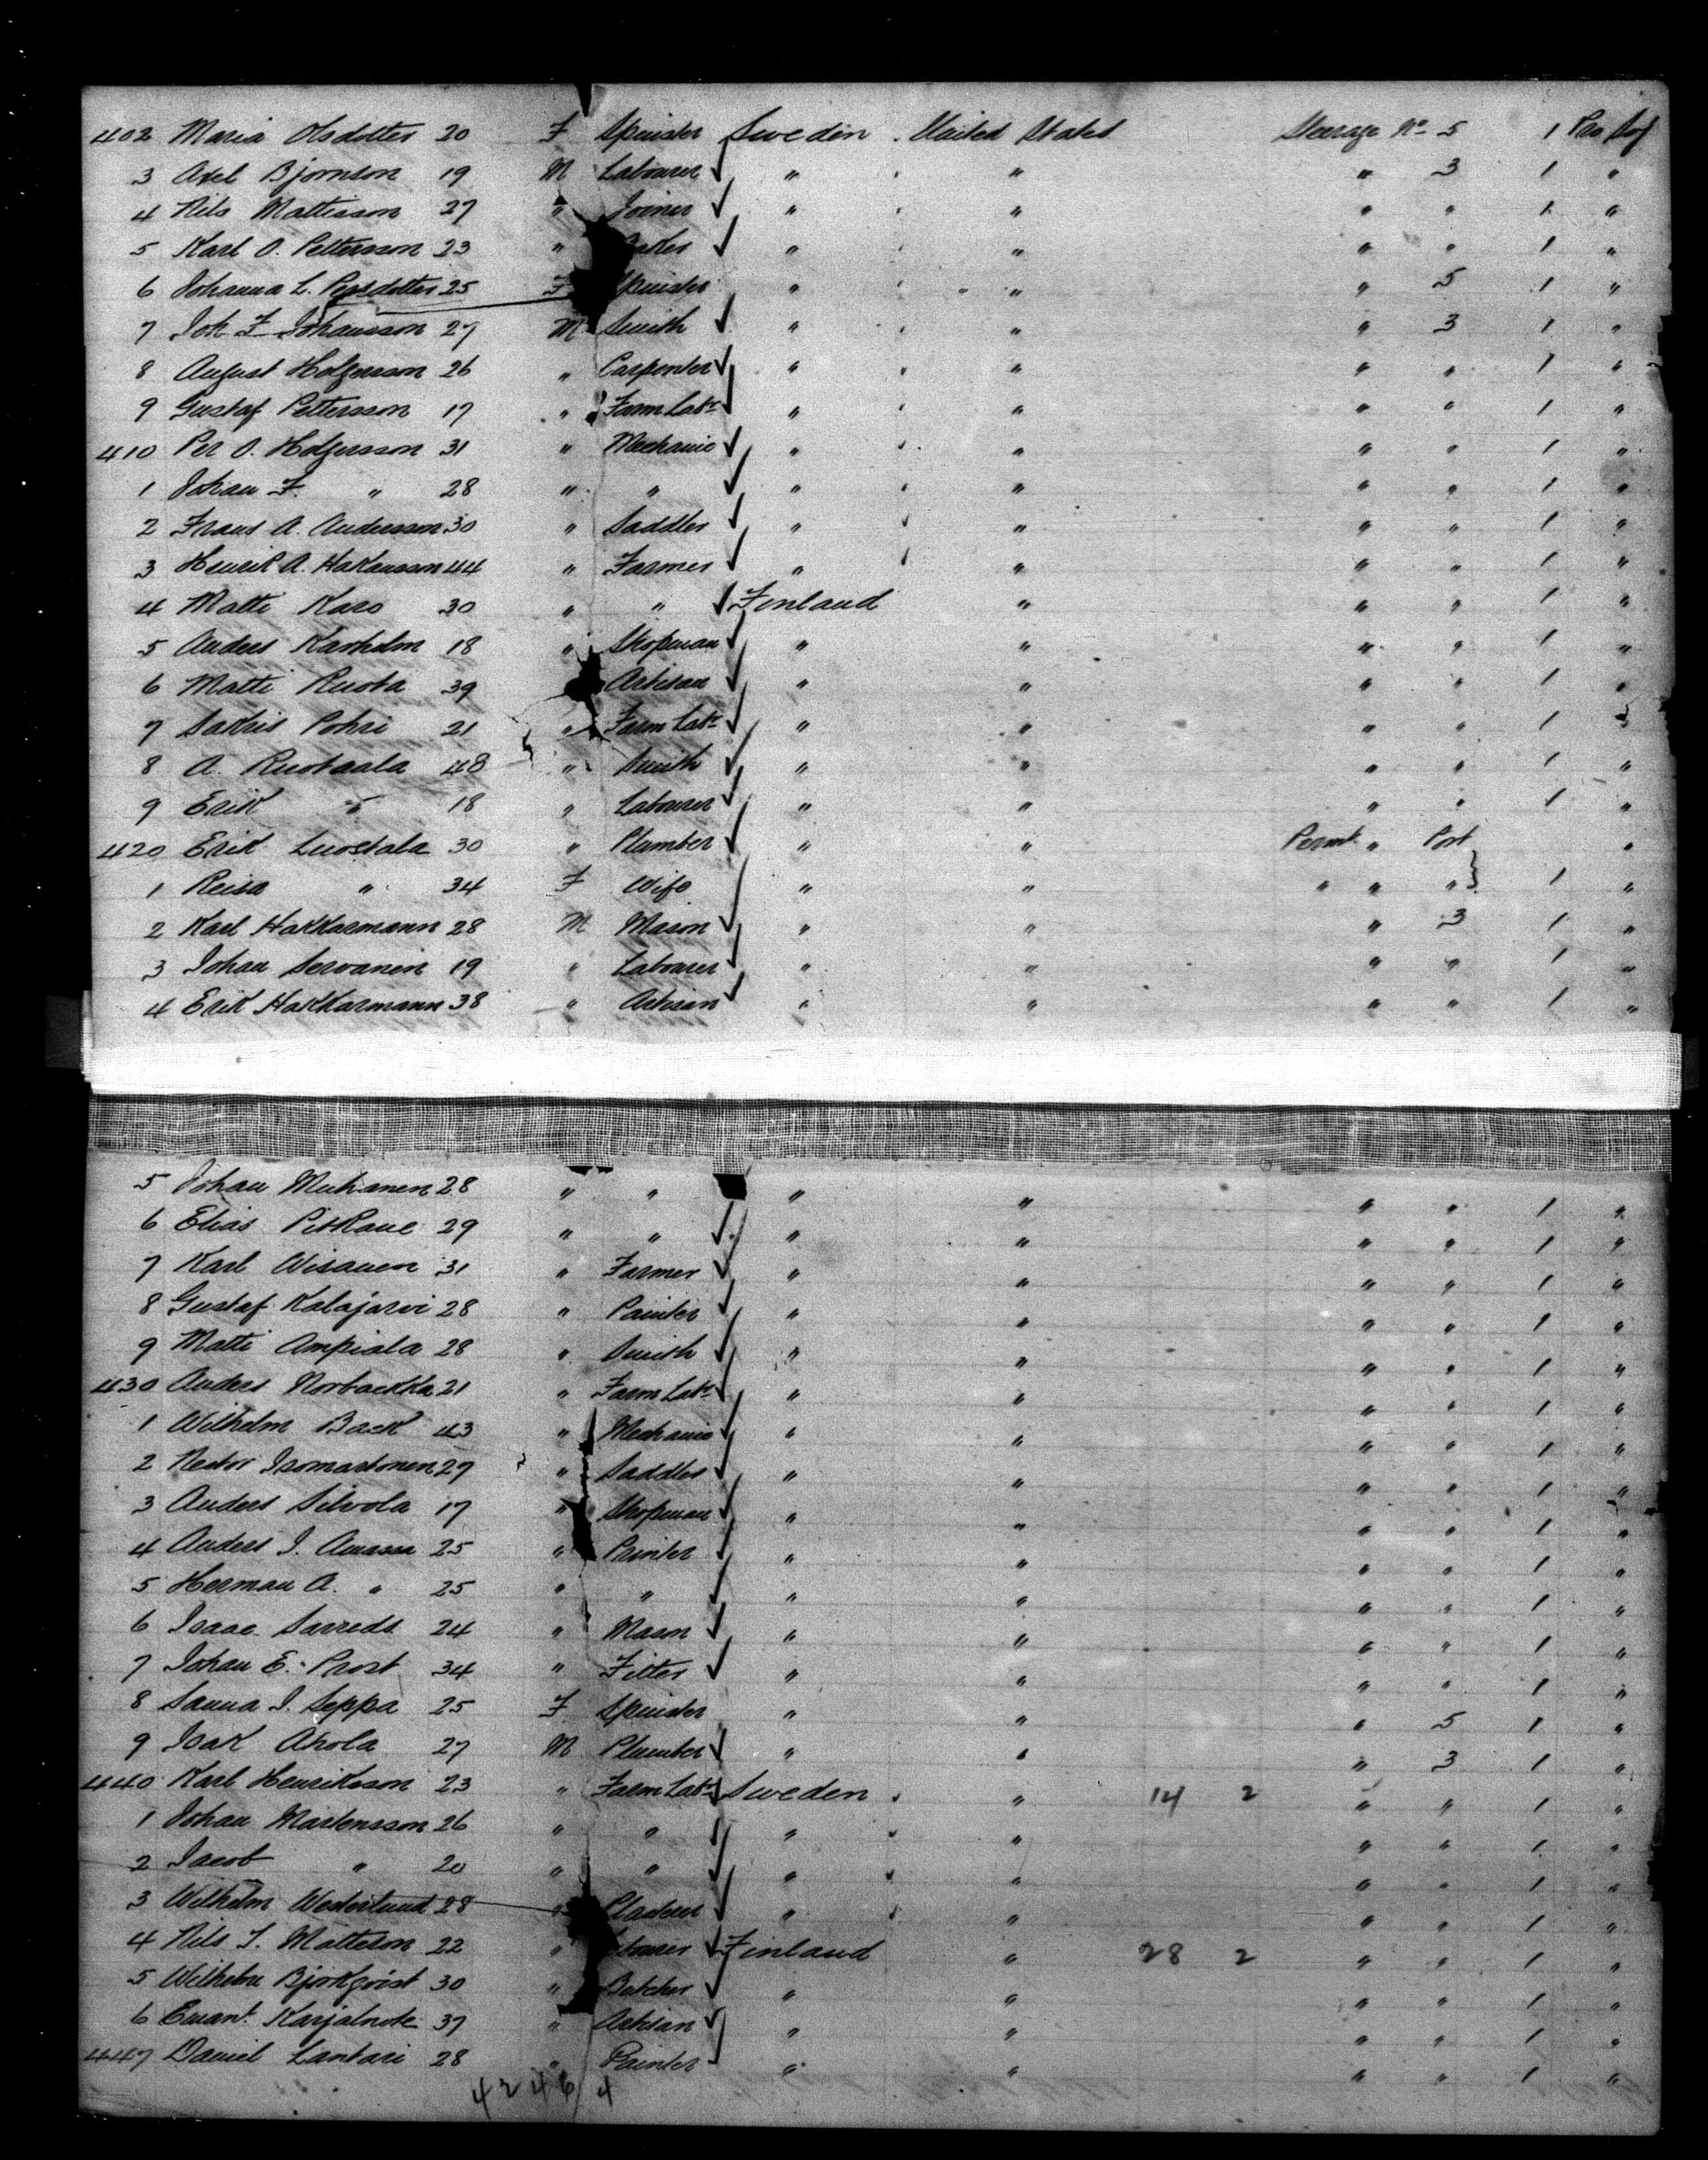 402 Maria Olsdotter 20 F Spinster Sweden . United States Steerage No 5 1 Pro Soj
3 Axel Bjornson 19 M Labourer " " " 3 1 "
4 Nils Mattisson 27 " Joiner " " " " 1 "
5 Karl O. Pettersson 23 " " " " " 1 "
6 Johanna L. Persdotter 25 F Spinster " " " 5 1 "
7 Joh F Johansson 27 M Smith " " " 3 1 "
8 August Holgersson 26 " Carpenter " " " " 1 "
9 Gustaf Pettersson 17 " Farm Labr " " " " 1 "
410 Per O. Holgersson 31 " Mechanic " " " " 1 "
1 Johan F. " 28 " " " " " " 1 "
2 Frans A. Andersson 30 " Saddler " " " " 1 "
3 Henrik A. Hakansson 44 " Farmer " " " " 1 "
4 Matti Karo 30 " " Finland " " " 1 "
5 Anders Karholm 18 " Shopman " " " " 1 "
6 Matti Ruota 39 Artisan " " " " 1 "
7 Sakris Pohri 21 " Farm Labr " " " " 1 "
8 A. Ruotaala 48 " Smith " " " " 1 "
9 Erik " 18 " Labourer " " " " 1 "
420 Erik Luostala 30 " Plumber " " Permt. " Port "
1 Reisa " 34 F Wife " " " " " 1 "
2 Karl Hakkarmann 28 M Mason " " " 3 1 "
3 Johan Servanen 19 " Labourer " " " " 1 "
4 Erik Hakkarmann 38 " Artisan " " " " 1 "
5 Johan Muhanen 28 " " " " " " 1 "
6 Elias Pitkane 29 " " " " " " 1 "
7 Karl Wisanen 31 " Farmer " " " " 1 "
8 Gustaf Kalajarvi 28 " Painter " " " " 1 "
9 Matti Ampiala 28 " Smith " " " " 1 "
430 Anders Norbackka 21 " Farm Labr " " " " 1 "
1 Wilhelm Back 43 " Mechanic " " " " 1 "
2 Nestor Isomartonen 27 " Saddler " " " " 1 "
3 Anders Silvola 17 " Shopman " " " " 1 "
4 Anders J. 25 " Printer " " " " 1 "
5 Herman A. " 25 " " " " " " 1 "
6 Isaac Sarreds 24 " Mason " " " " 1 "
7 Johan E. Prost 34 " Fitter " " " " 1 "
8 Sanna J. Seppa 25 F Spinster " " " 5 1 "
9 Isak Ahola 27 M Plumber " " " 3 1 "
440 Karl Henriksson 23 " Farm Labr Sweden . " 14 2 " " 1 "
1 Johan Martensson 26 " " " " " " 1 "
2 Jacob " 20 " " " " " " 1 "
3 Wilhelm Westerlund 28 " Plasterer " " " " 1 "
4 Nils J. Matteson 22 " Finland " 28 2 " " 1 "
5 Wilhelm Bjorkqvist 30 " Butcher " " " " 1 "
6 Emant. 37 " Artisan " " " " 1 "
447 Daniel Lantari 28 " Painter " " " " 1 "
42 46 / 4